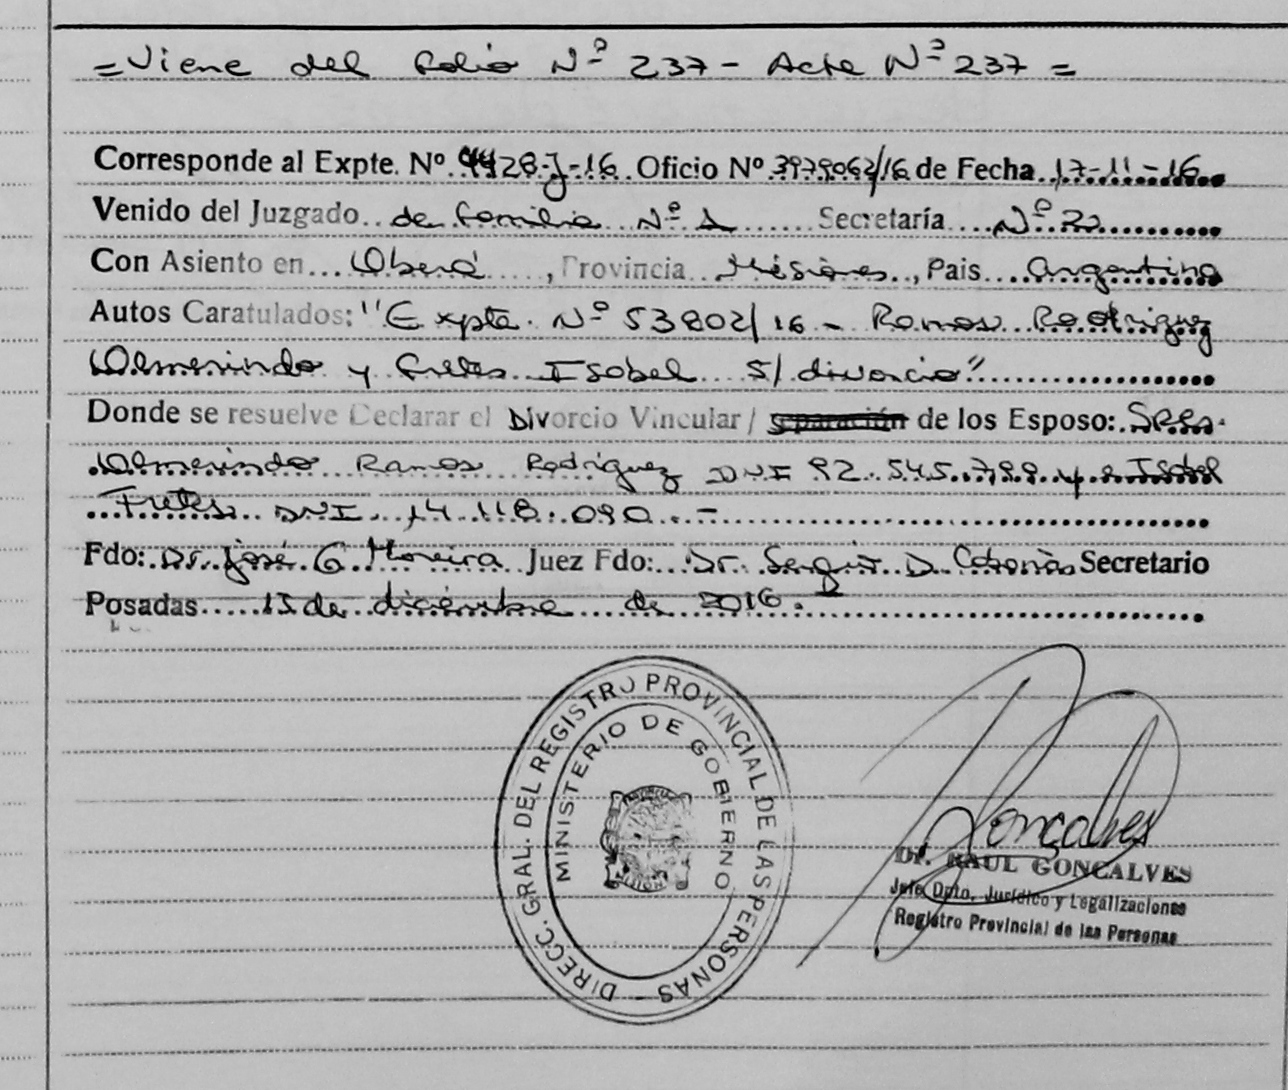 = Viene del folio Nº 237 - Acta Nº 237 =
Corresponde al Expte. Nº 4428-J-16 Oficio Nº 3979062/16 de Fecha 17-11-16
Venido del Juzgado de familia Nº 1 Secretaría Nº 2
Con Asiento en Oberá, Provincia Misiones, Pais Argentina
Autos Caratulados: "Expte. Nº 53802/16 - Ramos Rodriguez
Olmerindo y Fretes Isabel S/ divorcio"
Donde se resuelve Declarar el Divorcio Vincular / separación de los Esposo: Sres.
Olmerindo Ramos Rodriguez DNI 92.545.799 y Isabel
Fretes DNI 14.118.090.-
Fdo: Dr. José G Moreira Juez Fdo: Dr. Sergio D. Secretario
Posadas 15 de diciembre de 2016.
DIRECC. GRAL. DEL REGISTRO PROVINCIAL DE LAS PERSONAS
MINISTERIO DE GOBIERNO
Goncalves
Dr. RAUL GONCALVES
Jefe Dpto. Jurídico y Legalizaciones
Registro Provincial de las Personas